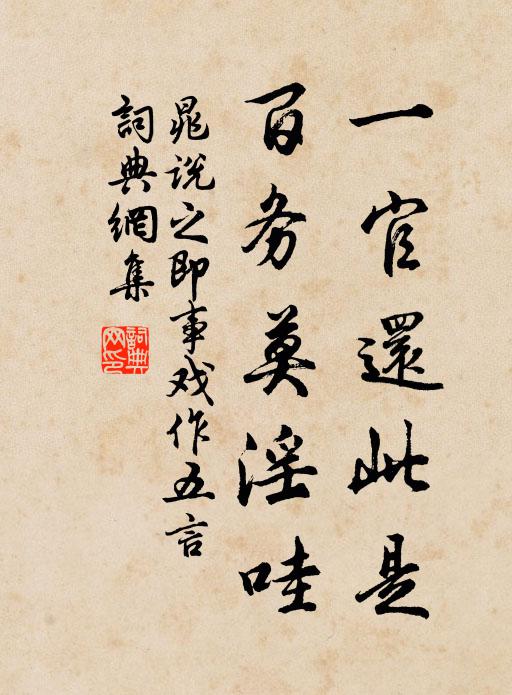 一官還此是
百务莫淫哇
晁说之即事戏作五言
詞典網集
詞典網印